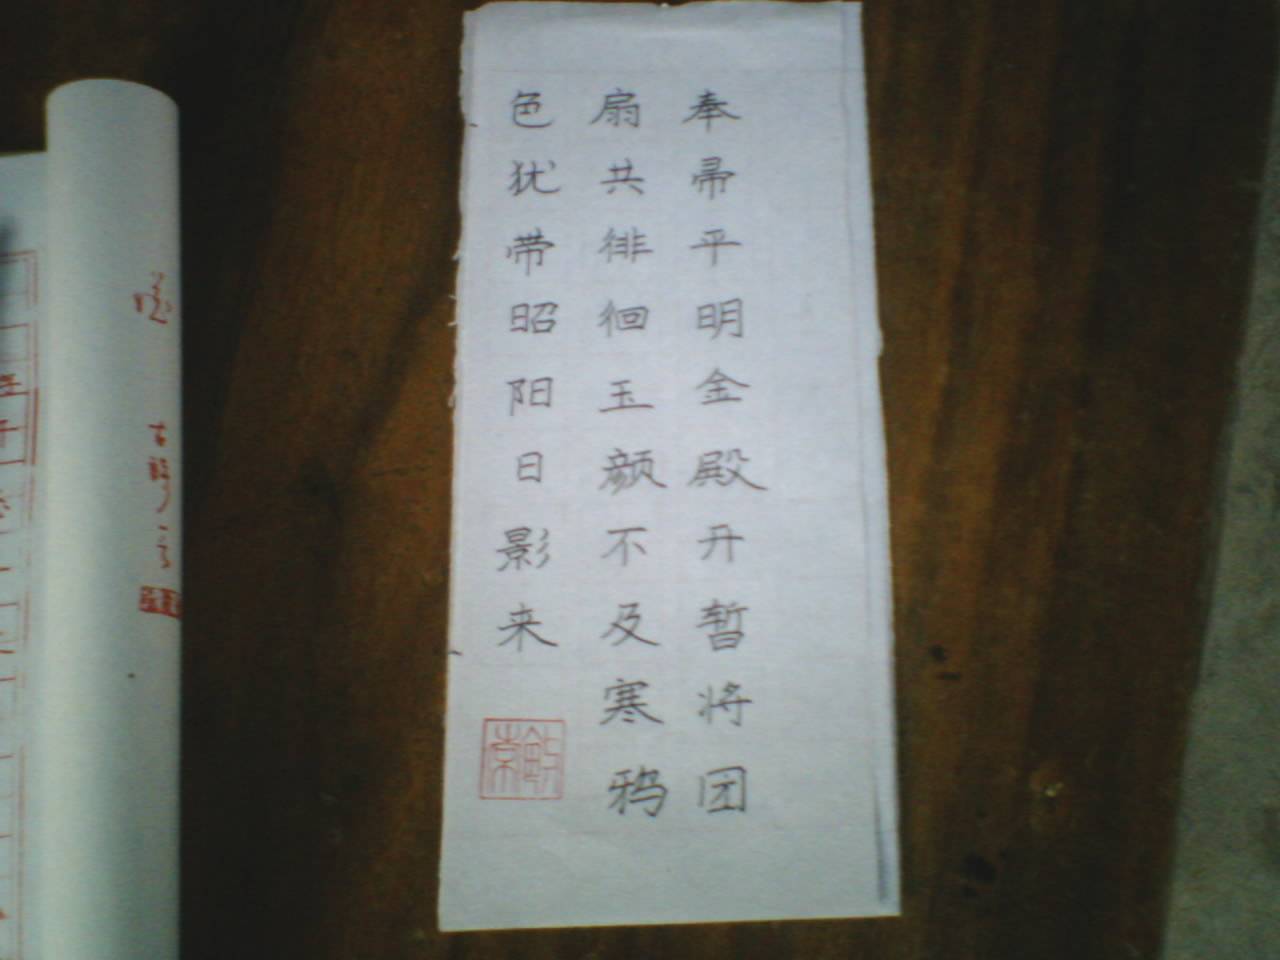 奉帚平明金殿开暂将团
扇共徘徊玉颜不及寒鸦
色犹带昭阳日影来